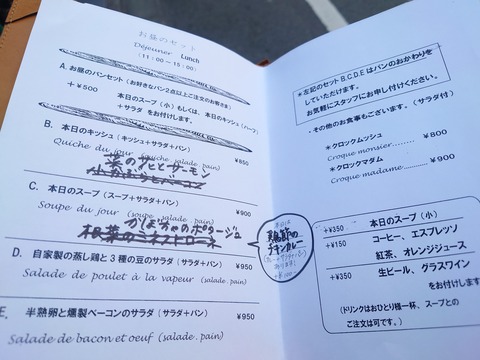 お昼のセット
Déjeuner Lunch
(11:00 - 15:00)
A. お昼のパンセット (お好きなパン2点以上ご注文のお客さま)
+¥500 本日のスープ(小)もしくは、本日のキッシュ(ハーフ)
+サラダ をお付けします。
B. 本日のキッシュ (キッシュ+サラダ+パン) ¥850
Quiche du jour (quiche.salade.pain)
菜の花とサーモン
C. 本日のスープ (スープ+サラダ+パン) ¥900
Soupe du jour (soupe.salade.pain)
かぼちゃのポタージュ
根菜のミネストローネ
D. 自家製の蒸し鶏と3種の豆のサラダ (サラダ+パン) ¥950
Salade de poulet à la vapeur (salade.pain)
E. 半熟卵と燻製ベーコンのサラダ (サラダ+パン) ¥950
Salade de bacon et oeuf (salade.pain)
本日は
チキンカレー
+¥100
*左記のセットB,C,D,Eはパンのおかわりを
していただけます。
お気軽にスタッフにお申し付けください。
・その他のお食事もございます。(サラダ付)
*クロックムッシュ
Croque monsier....... ¥800
*クロックマダム
Croque madame......... ¥900
+¥350 本日のスープ(小)
+¥350 コーヒー、エスプレッソ
紅茶、オレンジジュース
+¥350 生ビール、グラスワイン
をお付けします
(ドリンクはおひとり様一杯、スープとの
ご注文は可です。)